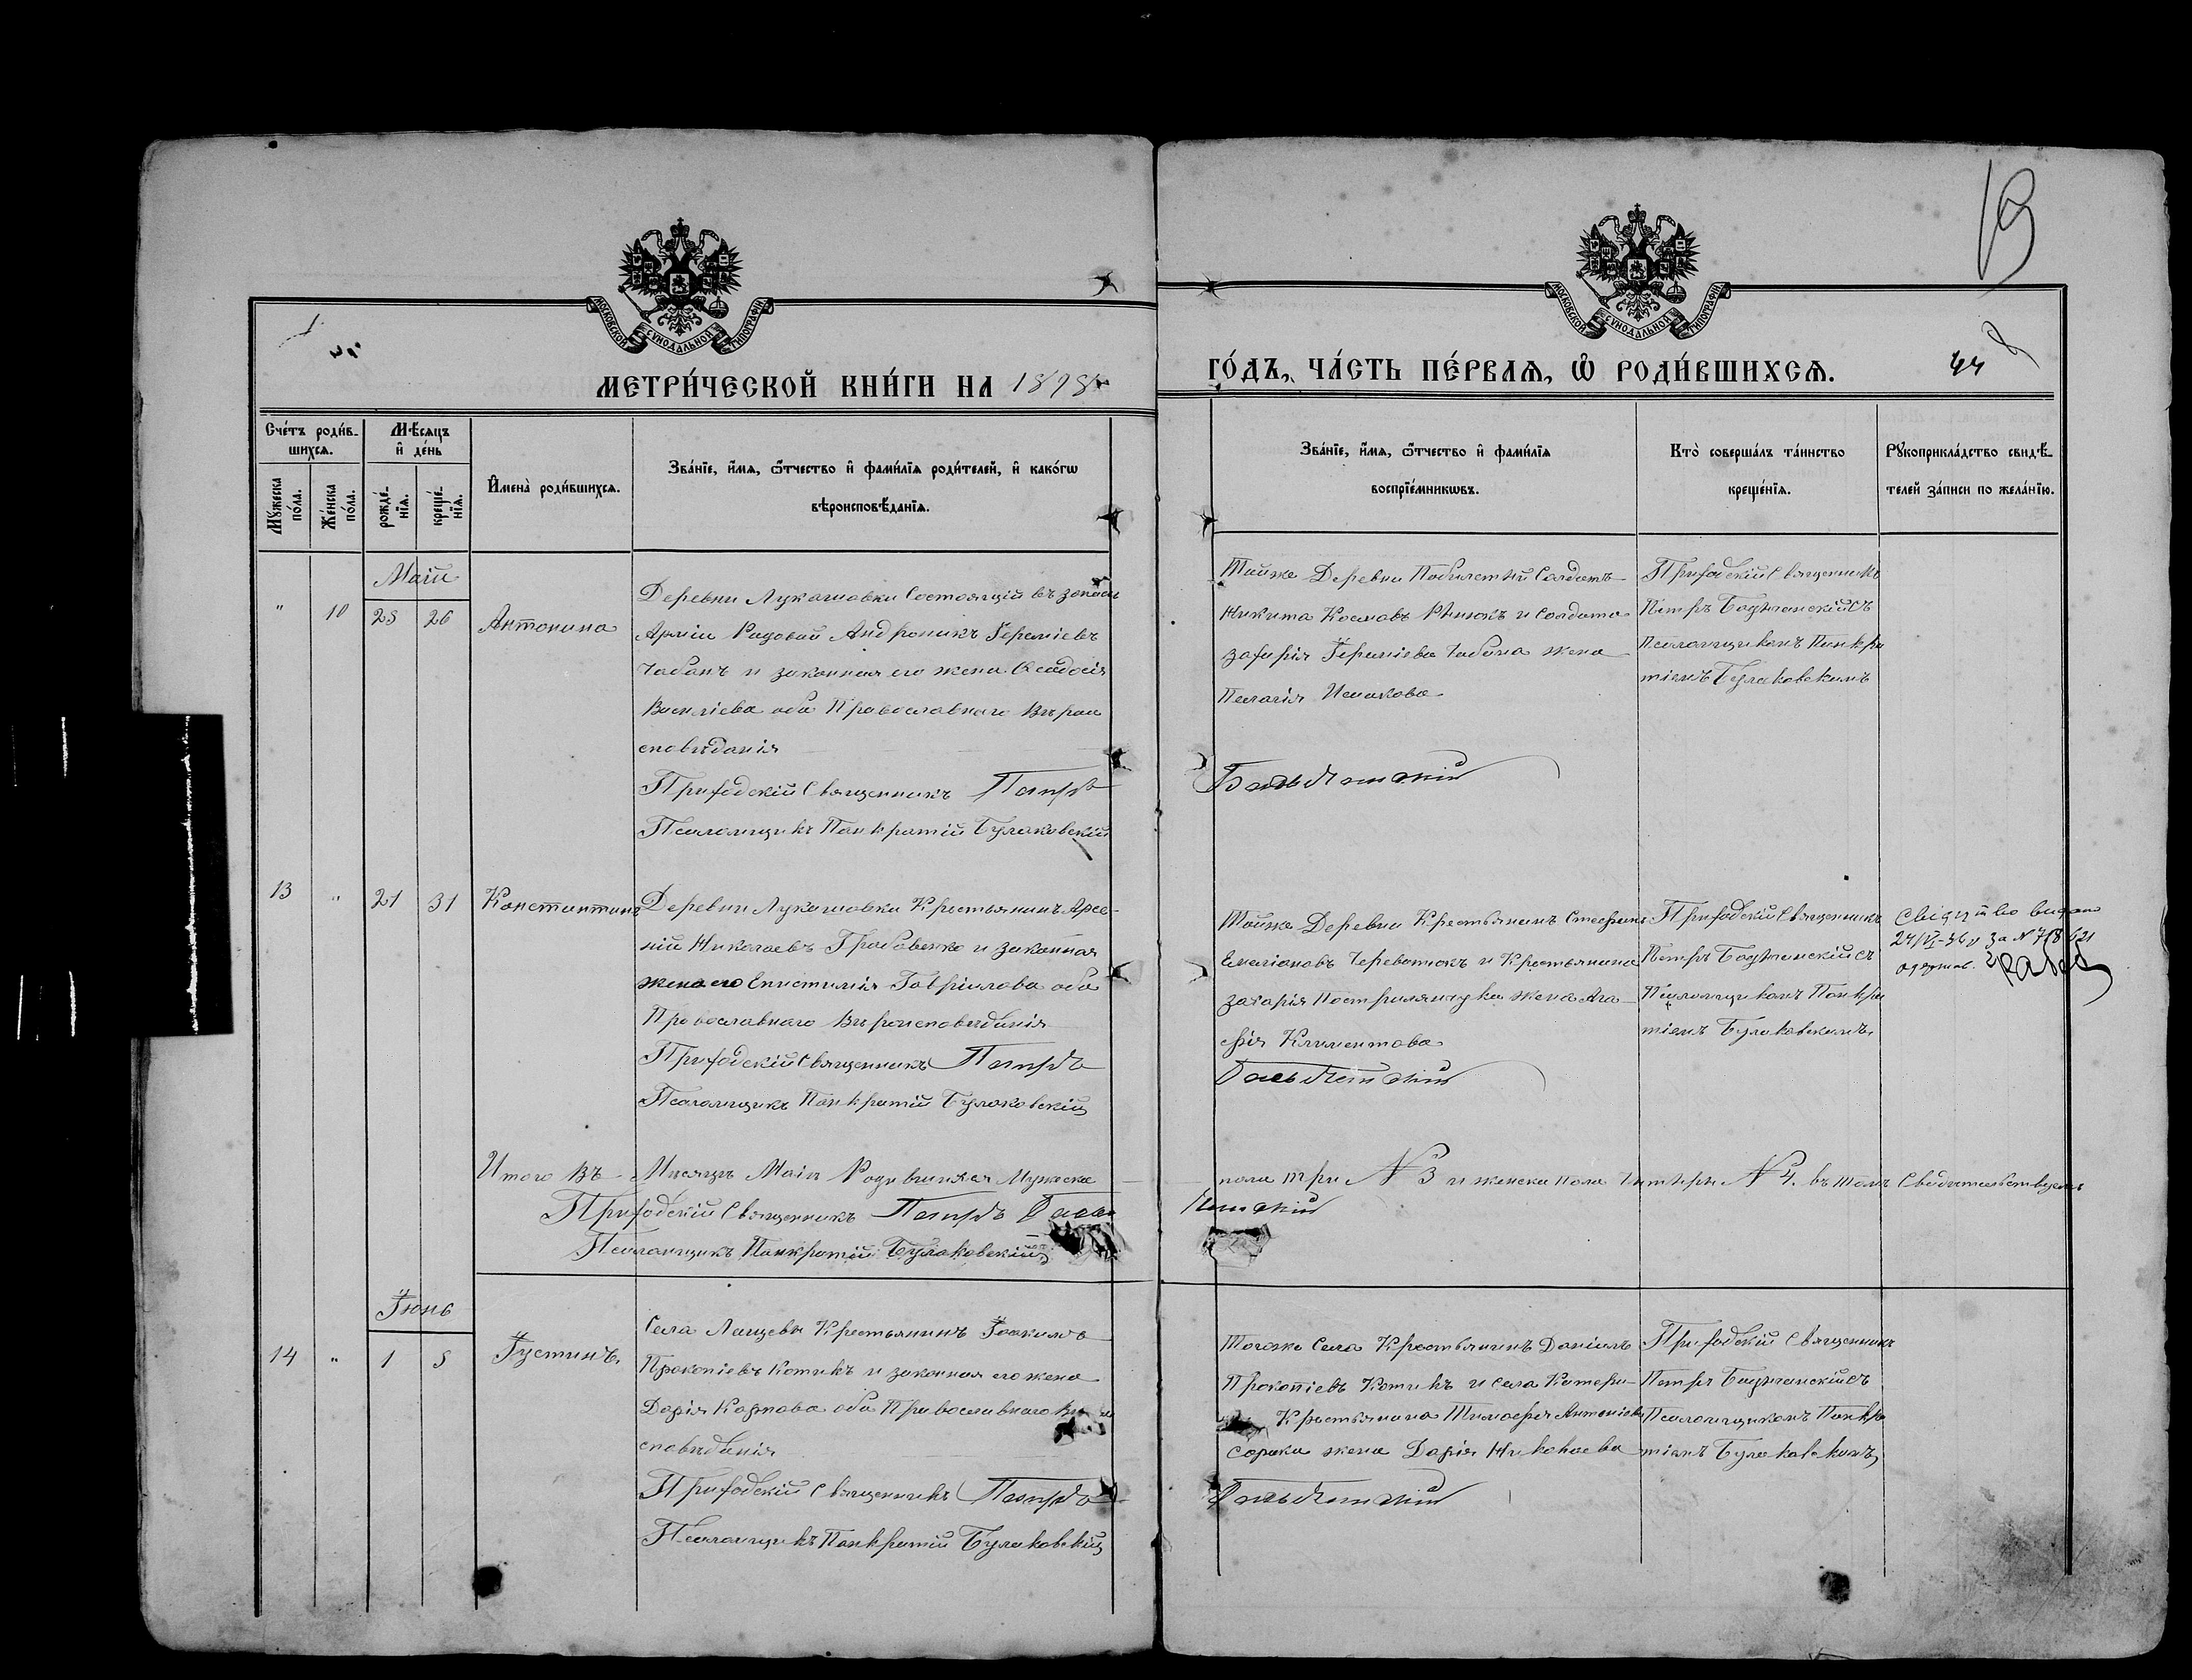 19
МОСКОВСКОЙ СѴНОДАЛЬНОЙ ТИПОГРАФІИ
МОСКОВСКОЙ СѴНОДАЛЬНОЙ ТИПОГРАФІИ
МЕТРИ́ЧЕСКОЙ КНИ́ГИ НА 1898
ГО́ДЪ, ЧА́СТЬ ПЕ́РВАЯ, Ѡ РОДИ́ВШИХСЯ.
44
Сче́тъ роди́в-
шихся.
Му́жеска по́ла.
Же́нска по́ла.
Мѣ́сяцъ
и҆ де́нь
рожде́-
нїя.
креще́-
нїя.
И҆мена̀ роди́вшихся.
Зва́нїе, и҆́мя, ѻ҆́тчество и҆ фами́лїя роди́телей, и҆ како́гѡ
вѣроисповѣ́данїя.
Зва́нїе, и҆́мя, ѻ҆́тчество и҆ фами́лїя
воспрїе́мникѡвъ.
Кто̀ соверша́лъ та́инство
креще́нїя.
Рꙋкоприкла́дство свидѣ́-
телей за́писи по жела́нїю.
Маій
" 10 25 26 Антонина
Деревни Лукашовки Состоящій въ запасѣ
Арміи Рядовой Андроникъ Іереміевъ
Чабанъ и законная его жена Ѳеодосія
Василіева оба Православнаго Вѣрои
сповѣданія
Приходскій Священникъ Петръ
Псаломщикъ Панкратій Булаковскій
Тойже Деревни Побилетный Солдатъ
Никита Космовъ и Солдата
Захарія Іереміева Чабана жена
Пелагія Исаакова
Приходскій Священникъ
Петръ съ
Псаломщикомъ Панкра
тіемъ Булаковскимъ
13 " 21 31 Константинъ
Деревни Лукашовки Крестьянинъ Арсе-
ній Николаевъ Грабовенко и законная
жена его Епистимія Гавріилова оба
Православнаго Вѣроисповѣданія
Приходскій Священникъ Петръ
Псаломщикъ Панкратій Булаковскій
Тойже Деревни Крестьянинъ Стефанъ
Емеліановъ Череватюкъ и Крестьянина
Захарія жена Ага-
фія Климентова
Приходскій Священникъ
Петръ съ
Псаломщикомъ Панкра
тіемъ Булаковскимъ.
24/VI-36 за №
Итого Въ Мѣсяцѣ Маіи Родившихся Мужеска
пола три № 3 и женска пола Читыри № 4. въ томъ Свидѣтельствуемъ
Приходскій Священникъ Петръ
Псаломщикъ Панкратій Булаковскій
Іюнь
14 " 1 5 Іустинъ.
Села Лящевы Крестьянинъ Іоакимъ
Прокопіевъ Котикъ и законная его жена
Дарія Карпова оба Православнаго
сповѣданія
Приходскій Священникъ Петръ
Псаломщикъ Панкратій Булаковскій
Тогоже Села Крестьянинъ Даніилъ
Прокопіевъ Котикъ и Села Катери-
Крестьянина Тимофея Антоніева
Сороки жена Дарія Николаева
Приходскій Священникъ
Петръ съ
Псаломщикомъ Панкра
тіемъ Булаковскимъ